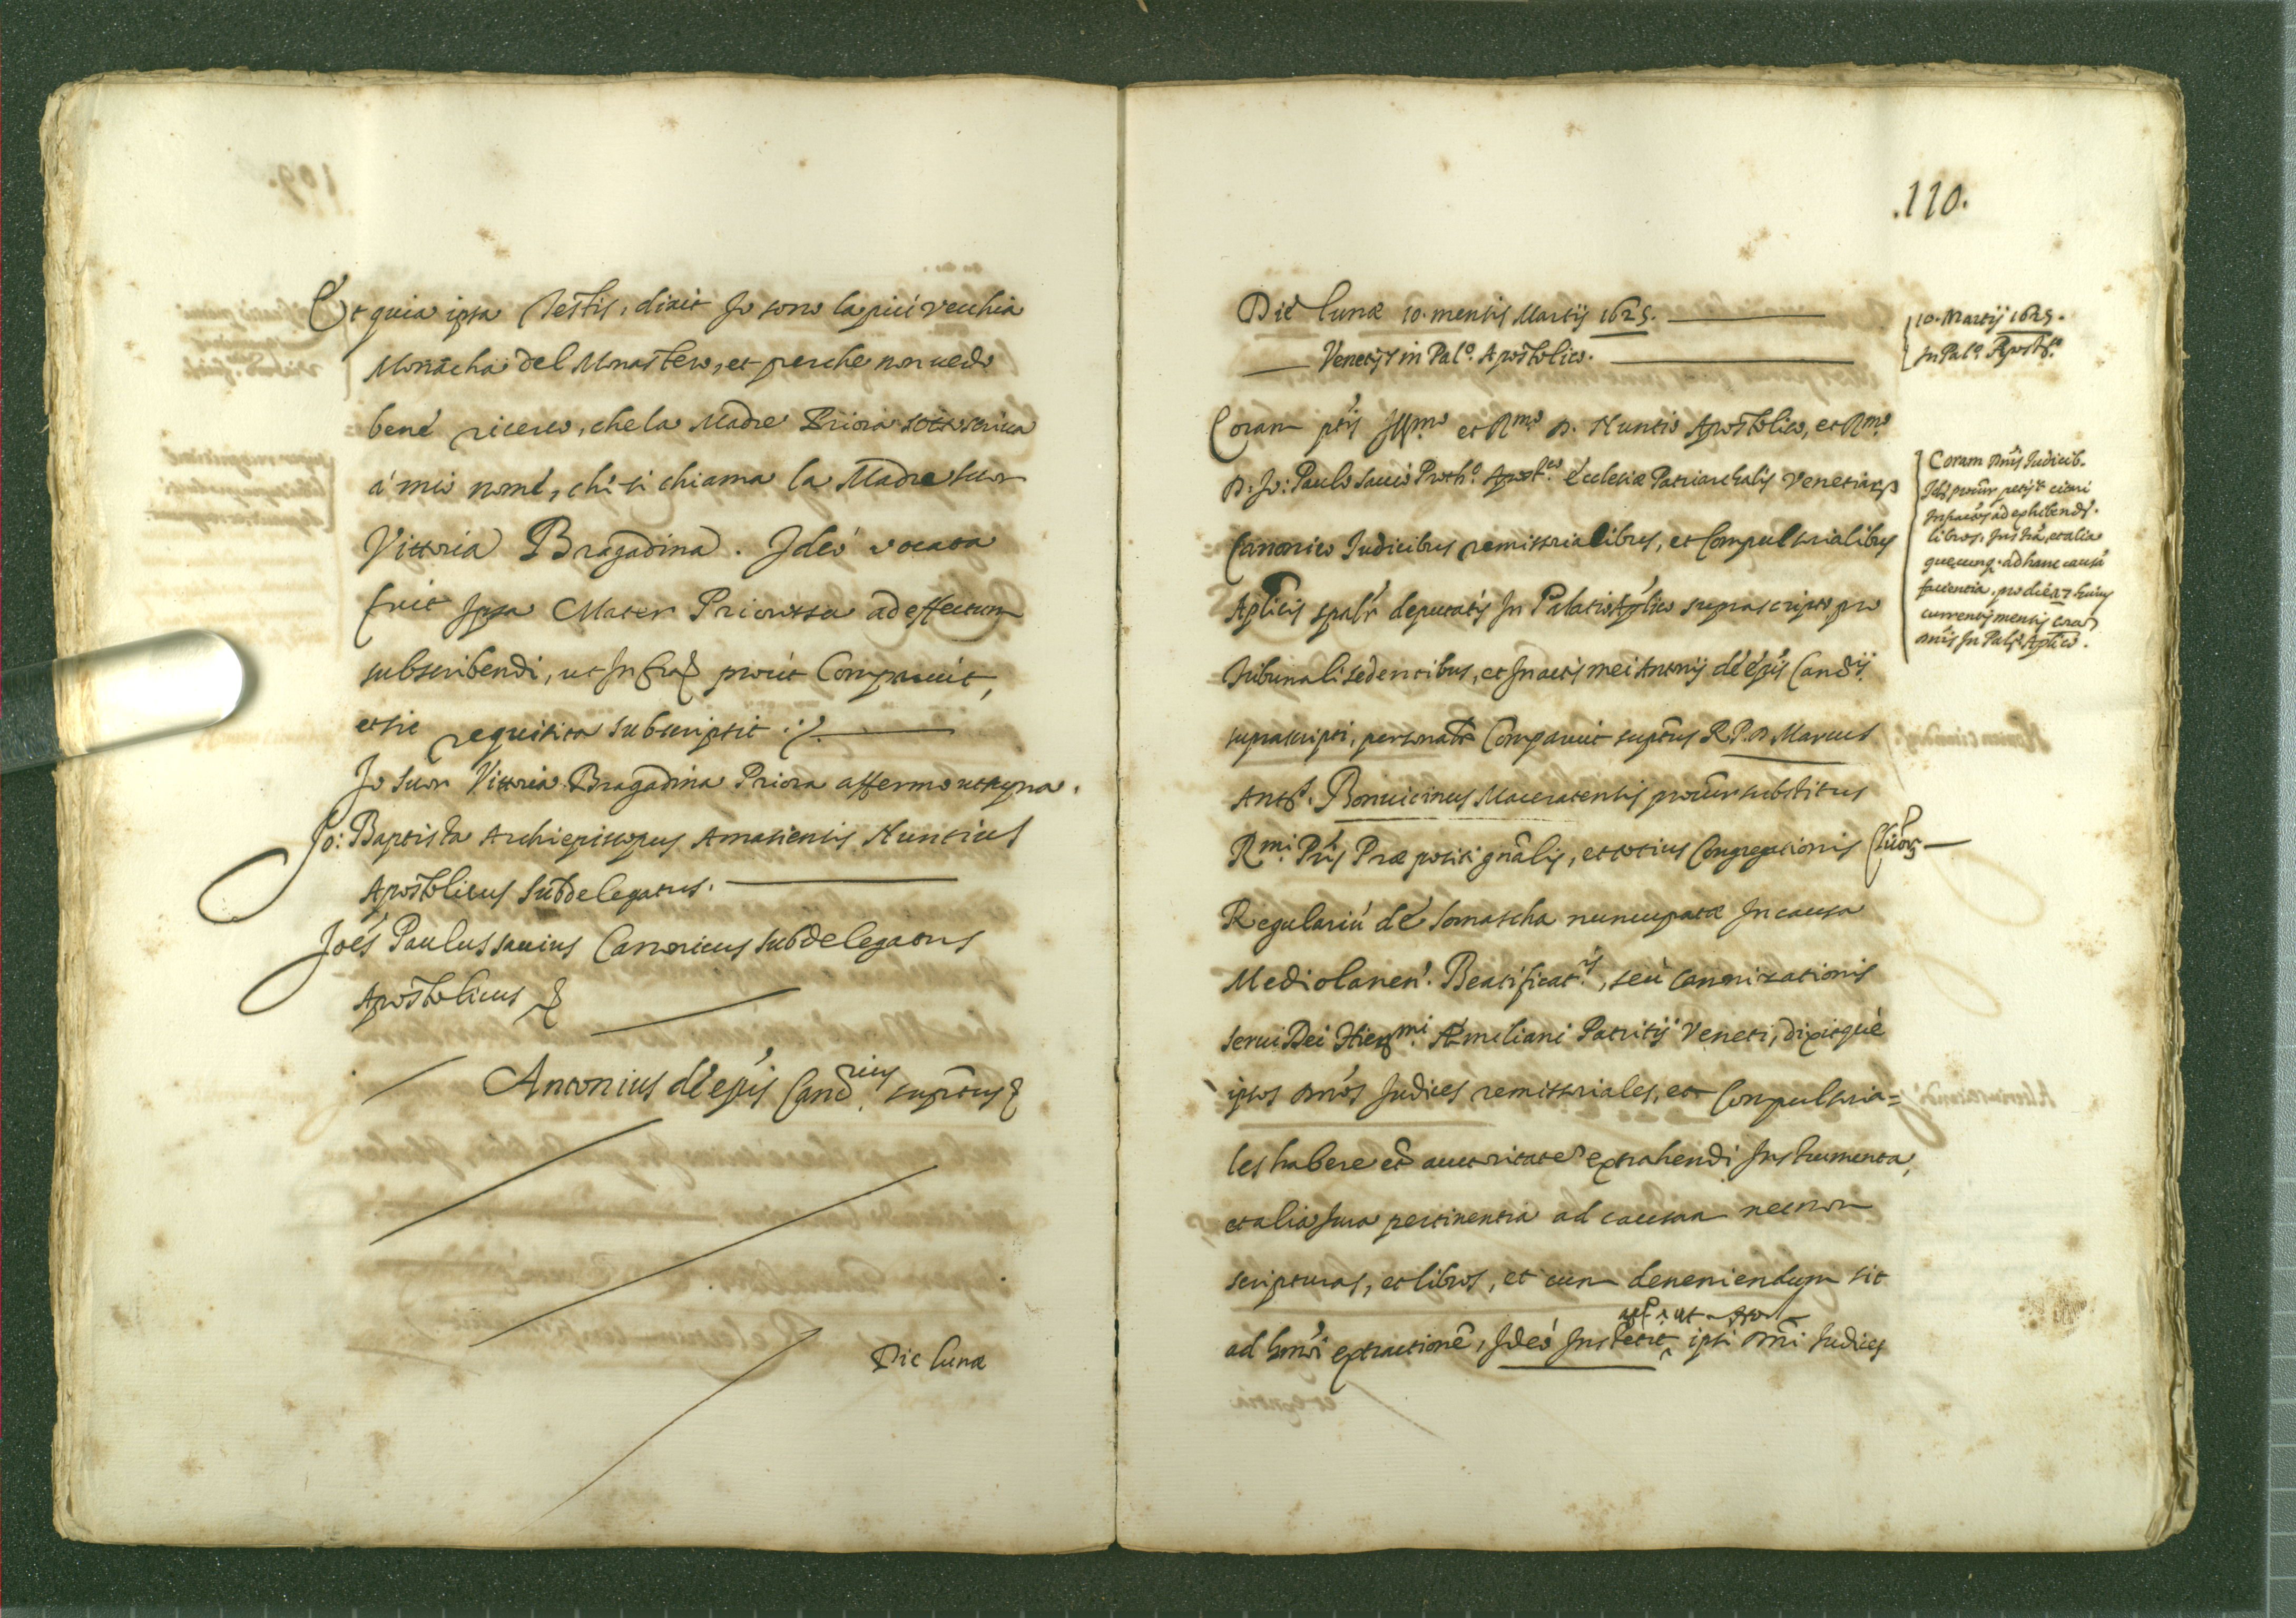 Et quia ipsa Testis, dixit Jo sono la più vecchia
Monacha del Monastero, et perche non uedo
bené ricerco, che la Madre Priora sottoscriua
á mio nomé, ché si chiama la Madre suor
Vittoria Bragadina. Ideó vocata
fuit Ipsa Mater Priorissa ad effectum
subscribendi, ut Infra prout Comparuit,
et sic requisita subscripsit :/.
Jo Suor Vittoria Bragadina Priora affermo ut supra.
Jo: Baptista Archiepiscopus Amasiensis Nuntius
Apostolicus Subdelegatus.
Joés Paulus sauius Canonicus subdelegatus
Apostolicus
Antonius dé epis Cand.rius suprãtus
Die lunæ
.110.
Dié lunæ 10. mensis Martij 1625.
Venetijs in Pal.o Apostolico.
10. Martij 1625.
In Pal.o Apost.co
Coram ptis Illmo et Rmo D. Nuntio Apostolico, et Rmo
D. Jo: Paulo Sauio Proth.o Apost.co Ecclesiæ Patriarchalis Venetiarum
Canonico Iudicibus remissorialibus, et Compulsorialibus
Aplicis spalr deputatis In Palatio Aplico suprascripto pro
Tribunali sedentibus, et In actis mei Antonij dé epis Cand.ij
suprascripti, personalr Comparuit suprãtus R.P.D. Marcus
Ant.s Bonuicinus Maceratensis procur substitutus
Rmi Pris Præpositi gnãlis, et totius Congregationis Cleicor
Regulariú dé Somascha nuncupatæ In causa
Mediolanen. Beatificat.is, seù Canonizationis
serui Dei Hieronmi Æmiliani Patritij Veneti, dixitqué
ipsos Dnos Iudices remissoriales, et Compulsoria=
les habere et auctoritaté extrahendi Instrumenta,
et alia Iura pertinentia ad causam necnon
scripturas, et libros, et cum deueniendum sit
ad hmõi extractioné, Ideó Instetit ipsi Dni Iudices
Coram Dnis Iudicib.
Idé procur petijt citari
ad exhibend.
libros, Iura, et alia
quæcunq. ad hanc causa
facientia, pro die 17 huius
currentis mensis cora
Dnis In Pal.o Aplico.